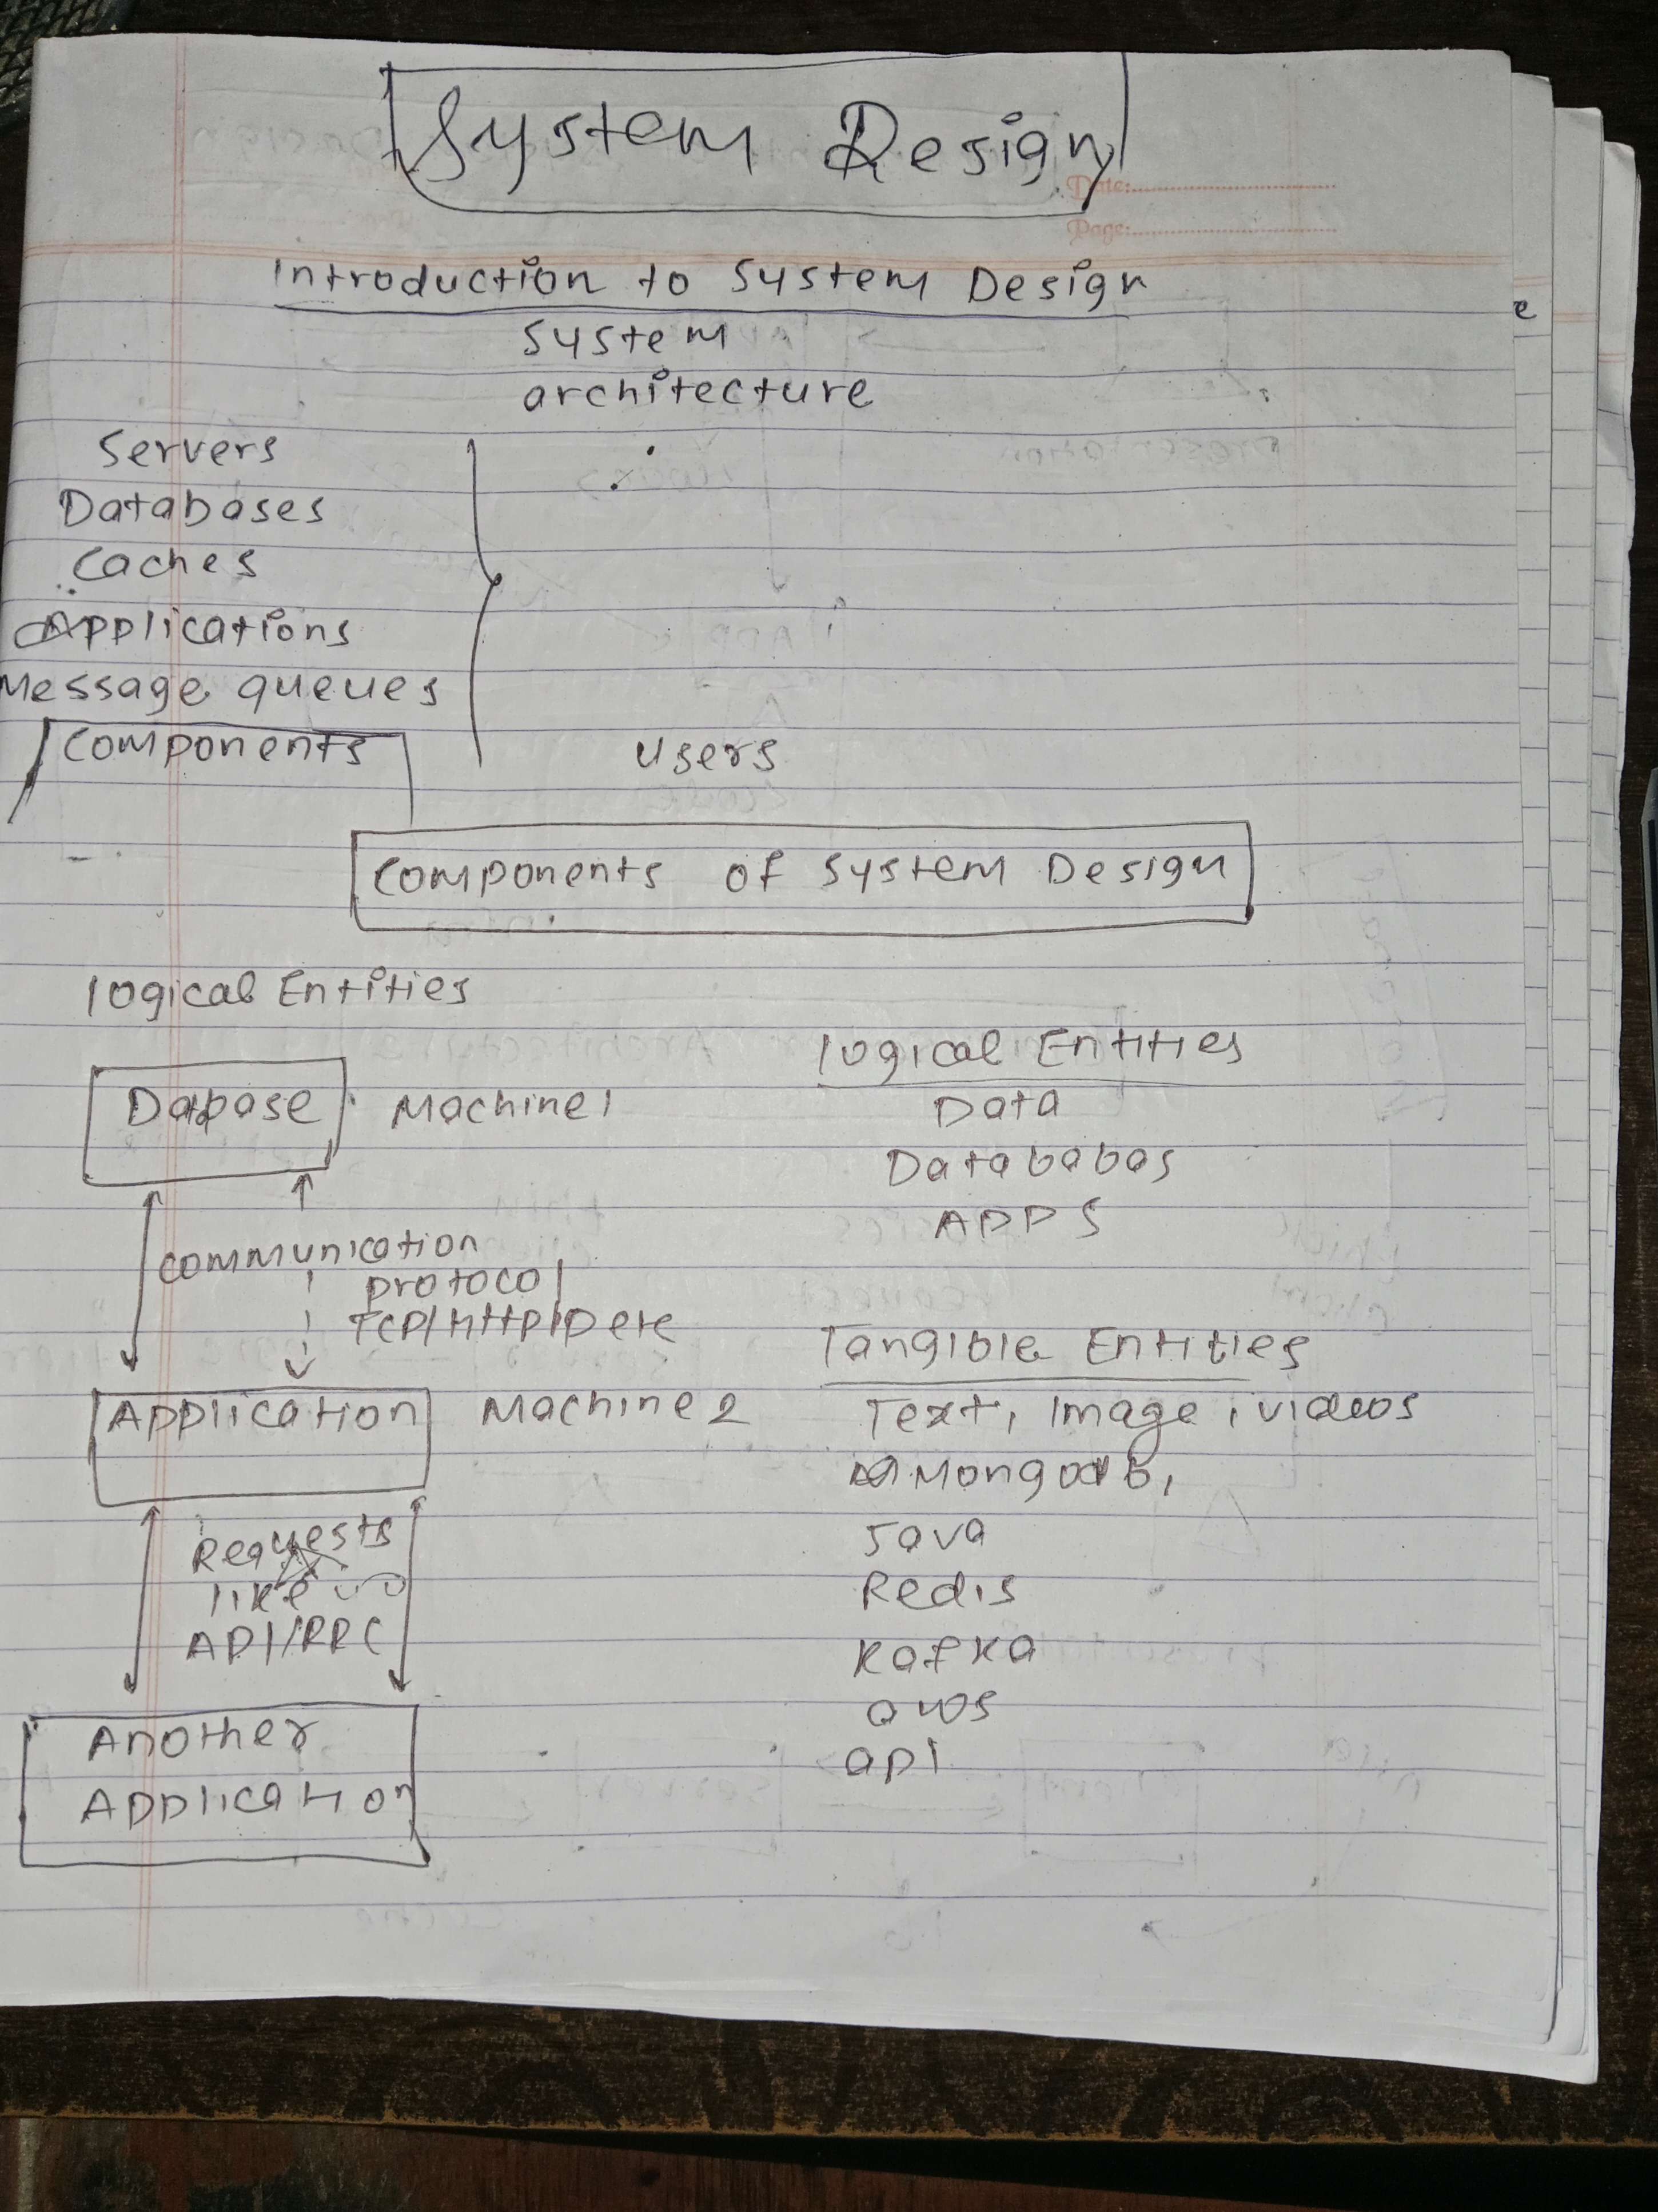 System Design
Date:
Page:
Introduction to System Design
System
architecture
Servers
Databases
Caches
Applications
Message queues
Components
Users
Components of System Design
logical Entities
Dabase Machine1
communication
protocol
TCP/Http/IP etc
Application Machine 2
Requests
like
API/RPC
Another
Application
logical Entities
Data
Datababas
APPS
Tangible Entities
Text, Image, videos
Mongodb,
Java
Redis
Kafka
aws
api